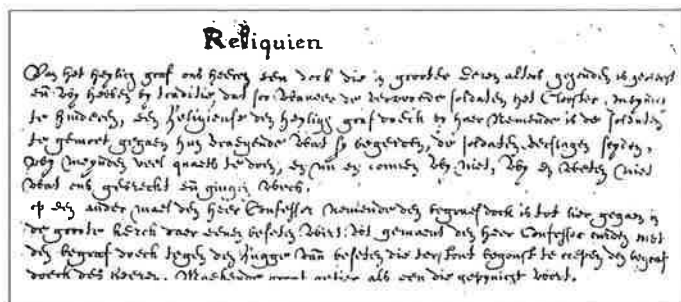 Reliquien
Van het heylich graf ons heeren een doeck die in grooter Eeren alters gehouden is geweest
en wy hebben by traditie, dat soo wanneer de verwoede soldaten het Clooster meynden
te hinderen, een Religieuse den heylich graf doeck by haer nemende is de soldaten
te gemoet gegaen hun vraegende wat sy begerden, de soldaten verslagen seyden,
wy meynden veel quaets te doen, en nu en connen wy niet, wy en weten niet
wat ons gebreckt en gingen wech.
Op een ander mael den heer Confessor nemende den begraef doeck is tot Lier gegaen in
de groote kerck daer eenen beseten wert: tot gemoent den heer Confessor comen met
den begraef doeck tegen den rugge van beseten die terstont begonst te criesen den begraef
doeck des heeren. als een die gepynicht wort.